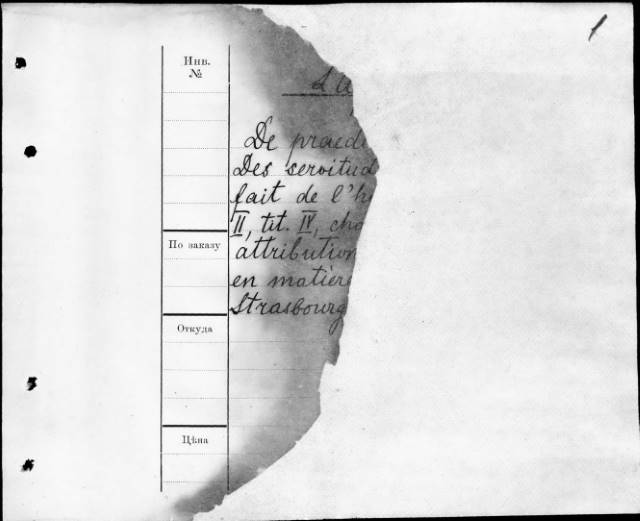 Инв.
№
По заказу
Откуда
Цѣна
De praed
Des servitud
fait de l'h
II, tit. IV, cha
attribution
en matière
Strasbourg